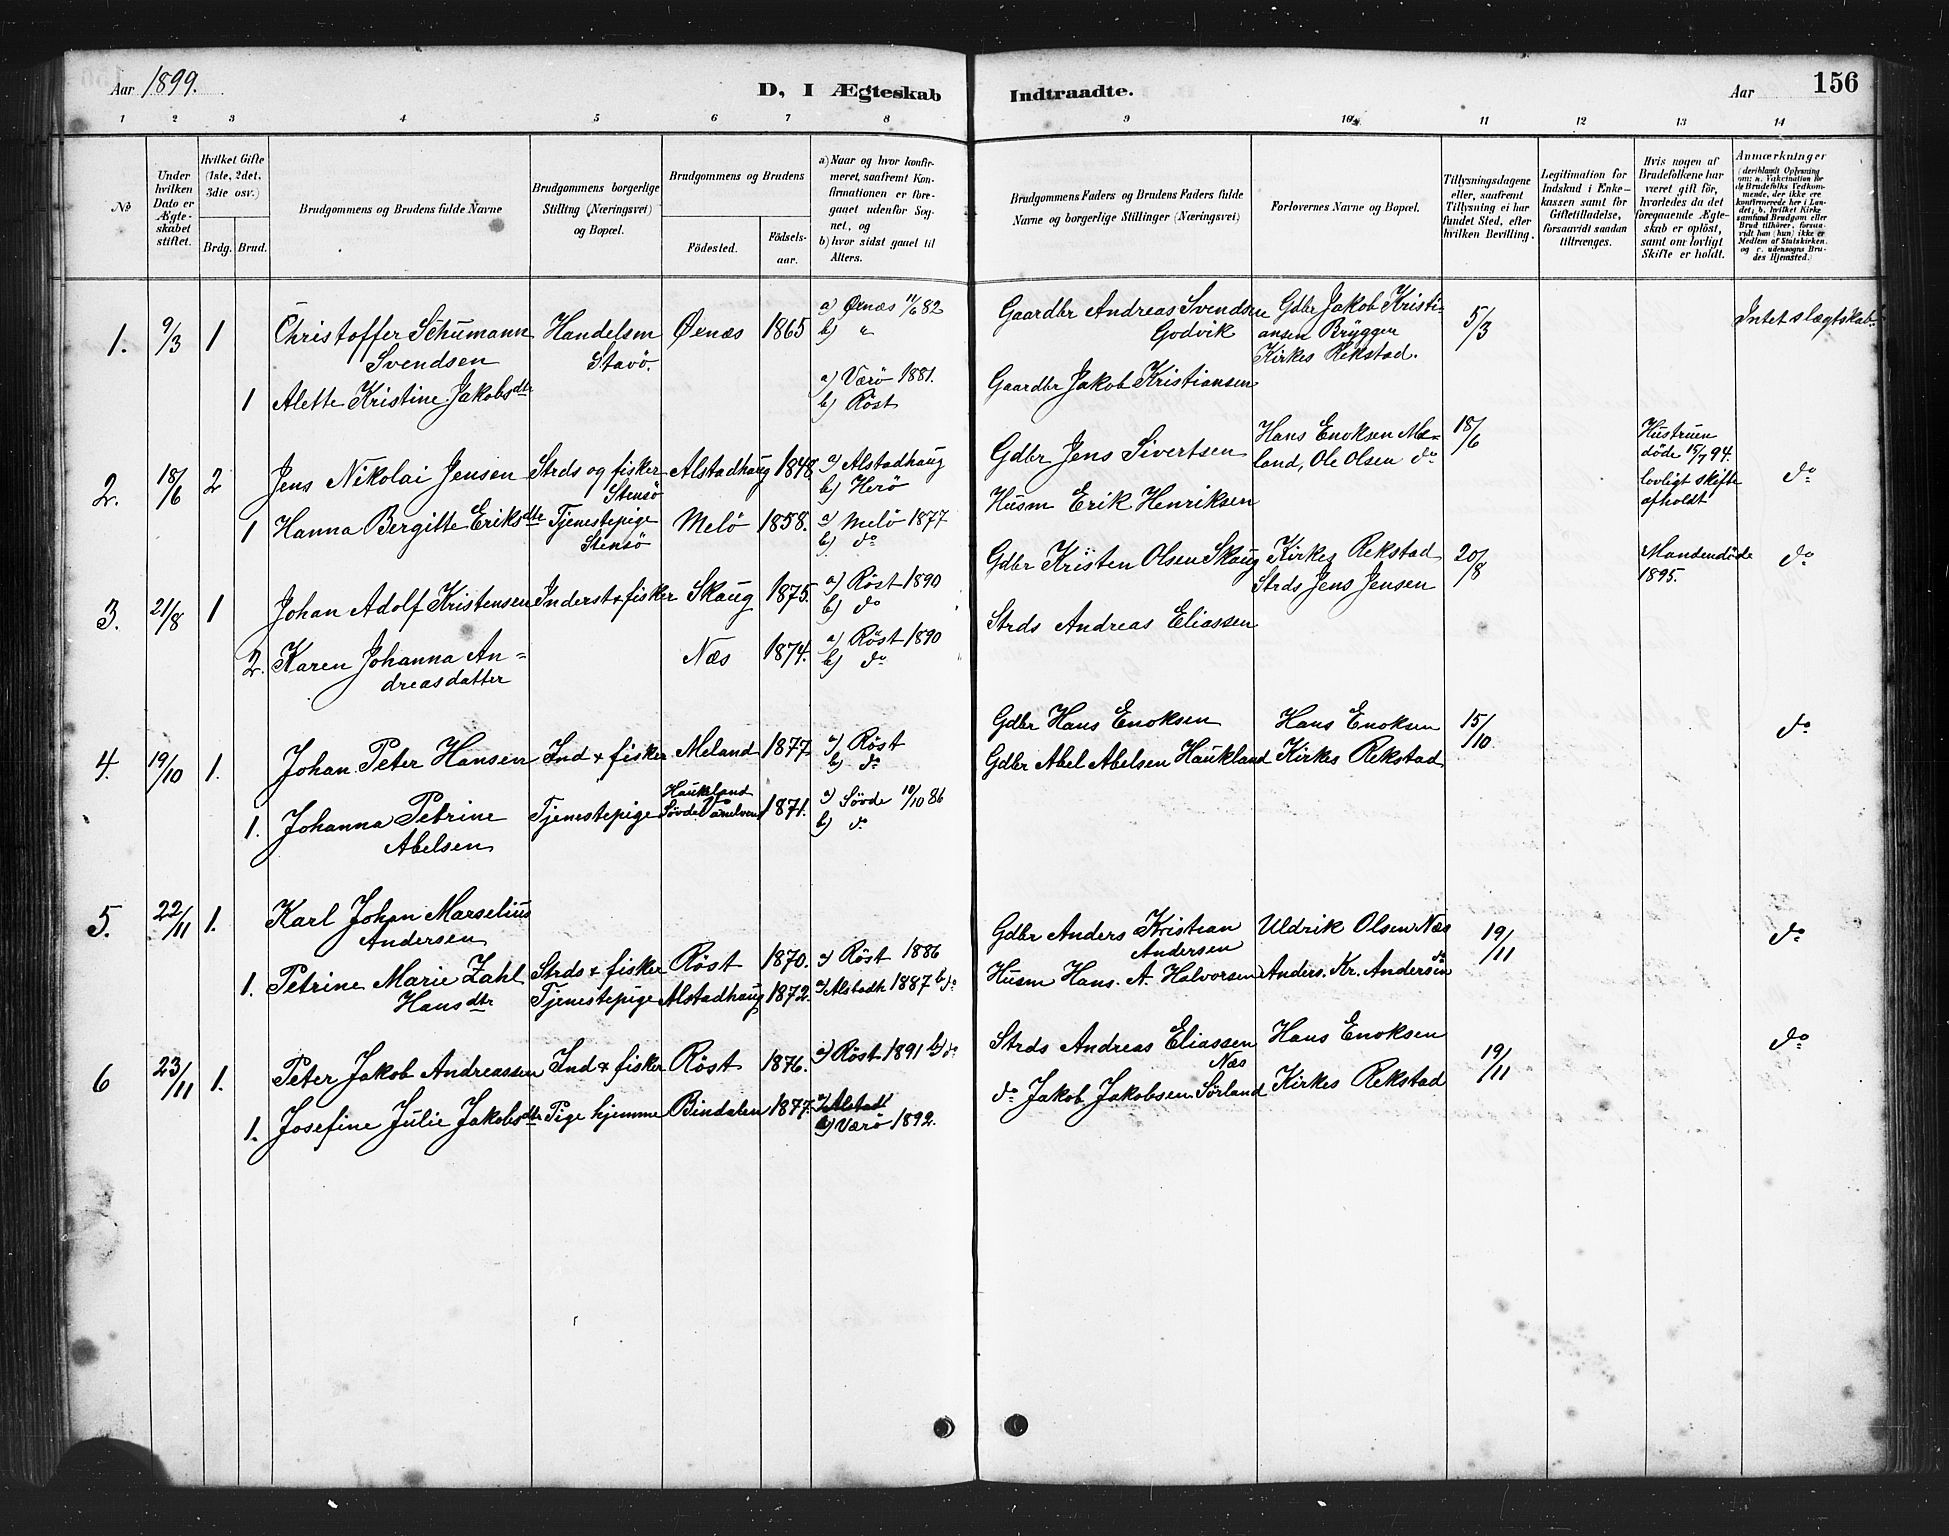 Aar 1899. D, I Ægteskab Indtraadte. Aar 156
1 2 3 4 5 6 7 8 9 10 11 12 13 14
№
Under hvilken Dato er Ægteskabet stiftet.
Hvilket Gifte (1ste, 2det, 3die osv.)
Brdg. Brud.
Brudgommens og Brudens fulde Navne
Brudgommens borgerlige Stilling (Næringsvei) og Bopæl.
Brudgommens og Brudens
Födested. Födselsaar.
a) Naar og hvor konfirmeret, saafremt Konfirmationen er foregaaet udenfor Sognet, og
b) hvor sidst gaaet til Alters.
Brudgommens Faders og Brudens Faders fulde Navne og borgerlige Stillinger (Næringsvei)
Forlovernes Navne og Bopæl.
Tillysningsdagene eller, saafremt Tillysning ei har fundet Sted, efter hvilken Bevilling.
Legitimation for Indskud i Enkekassen samt for Giftetilladelse, forsaavidt saadan tiltrænges.
Hvis nogen af Brudefolkene har været gift för, hvorledes da det foregaaende Ægteskab er oplöst, samt om lovligt Skifte er holdt.
Anmærkninger (deriblandt Oplysning om: a. Vakcination for de Brudefolks Vedkommende, der ikke ere konfirmerede her i Landet; b. hvilket Kirkesamfund Brudgom eller Brud tilhörer, forsaavidt han (hun) ikke er Medlem af Statskirken, og c. udensogns Brudes Hjemsted.)
1. 9/3 1 Christoffer Schumann Svendsen Handelsm Stavö. Øenæs 1865 a) Øenæs 11/6 82 b) "
Gaardbr Andreas Svendsen Godvik Gdbr Jakob Kristiansen Bryggen Kirkes Rekstad. 5/3 Intet slægtskab
1 Alette Kristine Jakobsdtr a) Værö 1881. b) Röst Gaardbr Jakob Kristiansen
2. 18/6 2 Jens Nikolai Jensen Strds og fisker Stensö Alstadhaug 1848. a) Alstadhaug b) Herö
Gdbr Jens Sivertsen Hans Enoksen Meland, Ole Olsen do 18/6 Hustruen döde 15/7 94. lovligt skifte afholdt do
1 Hanna Bergitte Eriksdtr Tjenestepige Stensö Melö 1858. a) Melö 1877 b) do Husm Erik Henriksen
3. 21/8 1 Johan Adolf Kristensen Inderst & fisker Skaug 1875. a) Röst 1890 b) do
Gdbr Kristen Olsen Skaug Kirkes Rekstad Strds Jens Jensen 20/8 Manden döde 1895. do
2. Karen Johanna Andreasdatter Næs 1874. a) Röst 1890 b) do Strds Andreas Eliassen
4. 19/10 1. Johan Peter Hansen Ind & fisker Meland 1877 a) Röst b) do
Gdbr Hans Enoksen Hans Enoksen 15/10. do
1. Johanna Petrine Abelsen Tjenestepige Haukland Sövde 1871. a) Sövde 10/10 86 b) do
Gdbr Abel Abelsen Haukland Kirkes Rekstad
5. 22/11 1. Karl Johan Marselius Andersen Strds & fisker Röst 1870. a) Röst 1886
Gdbr Anders Kristian Andersen Uldrik Olsen Næs 19/11 do
1. Petrine Marie Zahl Hansdtr Tjenestepige Alstadhaug 1872. a) Alstadh 1887 b) do
Husm Hans. A. Halvorsen Anders. Kr. Andersen do
6 23/11 1. Peter Jakob Andreassen Ind & fisker Röst 1876. a) Röst 1891 b) do
Strds Andreas Eliassen Næs Hans Enoksen 19/11 do
1. Josefine Julie Jakobsdtr Pige hjemme Bindalen 1877. a) Alstad b) Værö 1892.
do Jakob Jakobsen Sörland Kirkes Rekstad